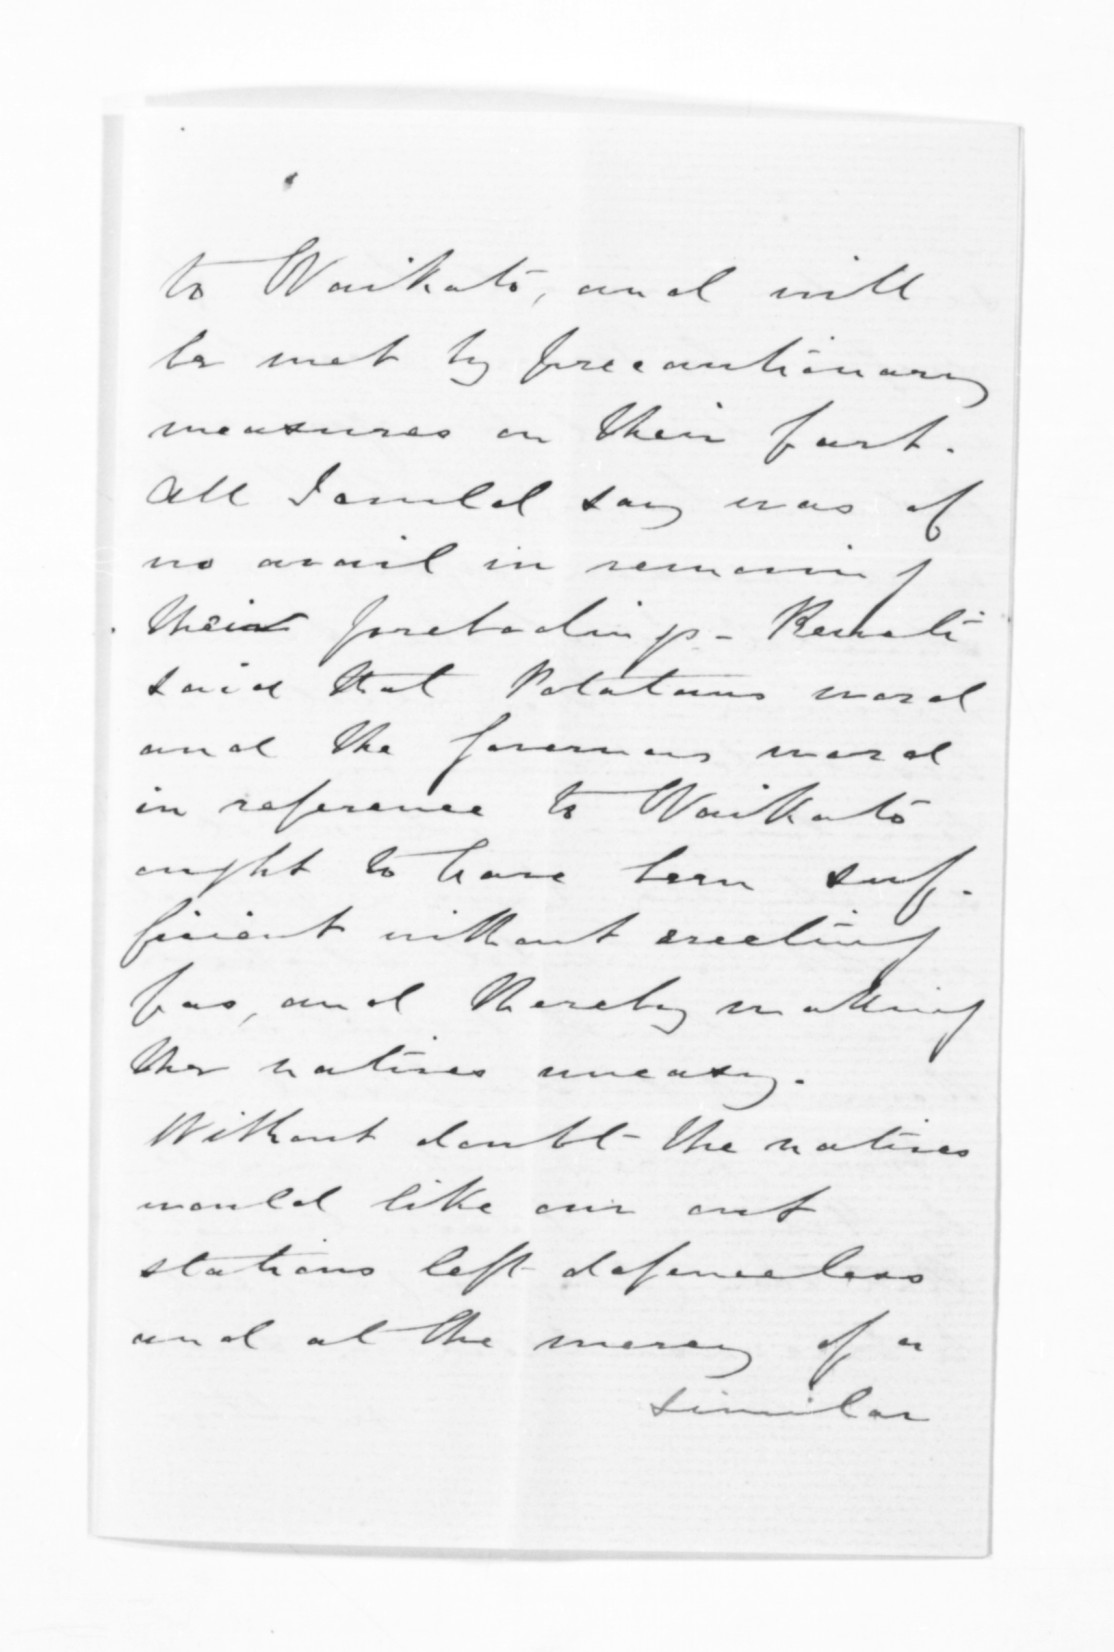 to Waikato, and will
be met by precautionary
measures on their part.
All I could say was of
no avail in removing
their forebodings -
said that Potataus word
and the Governors word
in reference to Waikato
ought to have been suf-
ficient without erecting
pas, and thereby making
the natives uneasy.
Without doubt the natives
would like our out
stations left defenceless
and at the mercy of a
similar